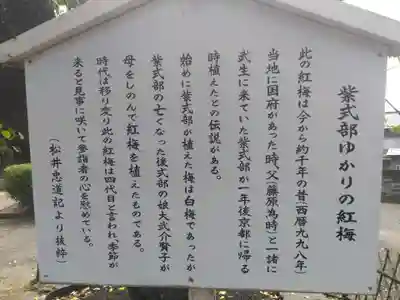 紫式部ゆかりの紅梅
此の紅梅は今から約千年の昔(西暦九九八年)
当地に国府があった時、父(藤原為時)と一諸に
武生に来ていた紫式部が一年後京都に帰る
時植えたとの伝説がある。
始めに紫式部が植えた梅は白梅であったが
紫式部の亡くなった後式部の娘大弐介賢子が
母をしのんで紅梅を植えたものである。
時代は移り変り此の紅梅は四代目と言われ季節が
来ると見事に咲いて参詣者の心を慰めている。
(松井忠道記より抜粋)